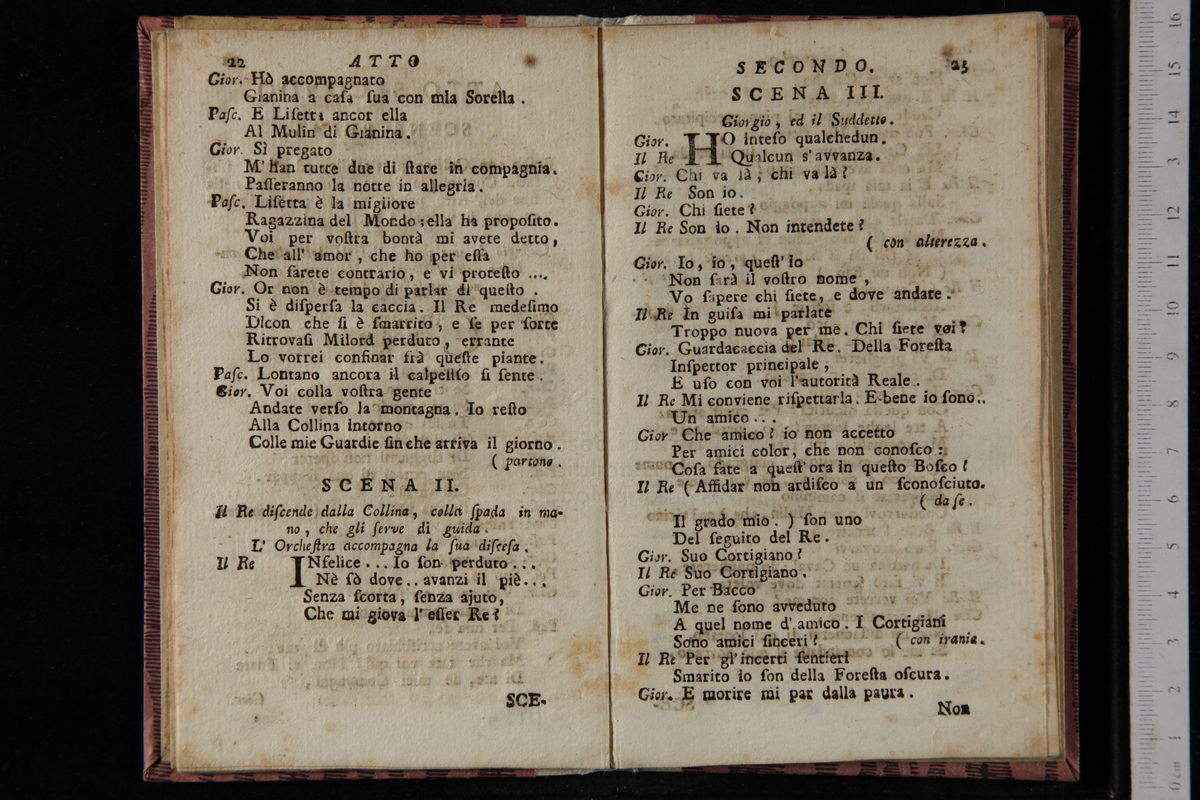 22 ATTO
Gior. Hò accompagnato
Gianina a caſa ſua con mia Sorella .
Paſc. E Liſetta ancor ella
Al Mulin di Gianina .
Gior. Sì pregato
M' han tutte due di ſtare in compagnia .
Paſſeranno la notte in allegria .
Paſc. Liſetta è la migliore
Ragazzina del Mondo ; ella ha propoſito .
Voi per voſtra bontà mi avete detto ,
Che all' amor , che ho per eſſa
Non ſarete contrario , e vi proteſto ....
Gior. Or non è tempo di parlar di queſto .
Si è diſperſa la caccia . Il Re medeſimo
Dicon che ſi è ſmarrito , e ſe per ſorte
Ritrovaſi Milord perduto , errante
Lo vorrei confinar frà queſte piante .
Paſc. Lontano ancora il calpeſtio ſi ſente .
Gior. Voi colla voſtra gente
Andate verſo la montagna . Io reſto
Alla Collina intorno
Colle mie Guardie fin che arriva il giorno .
( partono .
SCENA II.
Il Re diſcende dalla Collina , colla ſpada in ma-
no , che gli ſerve di guida .
L' Orcheſtra accompagna la ſua diſceſa .
Il Re INfelice . . . Io ſon perduto . . .
Nè ſò dove . . avanzi il piè . . .
Senza ſcorta , ſenza ajuto ,
Che mi giova l' eſſer Re ?
SCE-
SECONDO. 23
SCENA III.
Giorgio , ed il Suddetto .
Gior. HO inteſo qualchedun .
Il Re Qualcun s' avvanza .
Gior. Chi va là ; chi va là ?
Il Re Son io .
Gior. Chi ſiete ?
Il Re Son io . Non intendete ?
( con alterezza .
Gior. Io , io , queſt' io
Non ſarà il voſtro nome ,
Vo ſapere chi ſiete , e dove andate .
Il Re In guiſa mi parlate
Troppo nuova per me . Chi ſiete voi ?
Gior. Guardacaccia del Re . Della Foreſta
Inſpettor principale ,
E uſo con voi l' autorità Reale .
Il Re Mi conviene riſpettarla . E bene io ſono . .
Un amico . . .
Gior Che amico ? io non accetto
Per amici color , che non conoſco :
Coſa fate a queſt' ora in queſto Boſco ?
Il Re ( Affidar non ardiſco a un ſconoſciuto .
( da ſe .
Il grado mio . ) ſon uno
Del ſeguito del Re .
Gior. Suo Cortigiano ?
Il Re Suo Cortigiano .
Gior. Per Bacco
Me ne ſono avveduto
A quel nome d' amico . I Cortigiani
Sono amici ſinceri ? ( con irania .
Il Re Per gl' incerti ſentieri
Smarito io ſon della Foreſta oſcura .
Gior. E morire mi par dalla paura .
Non